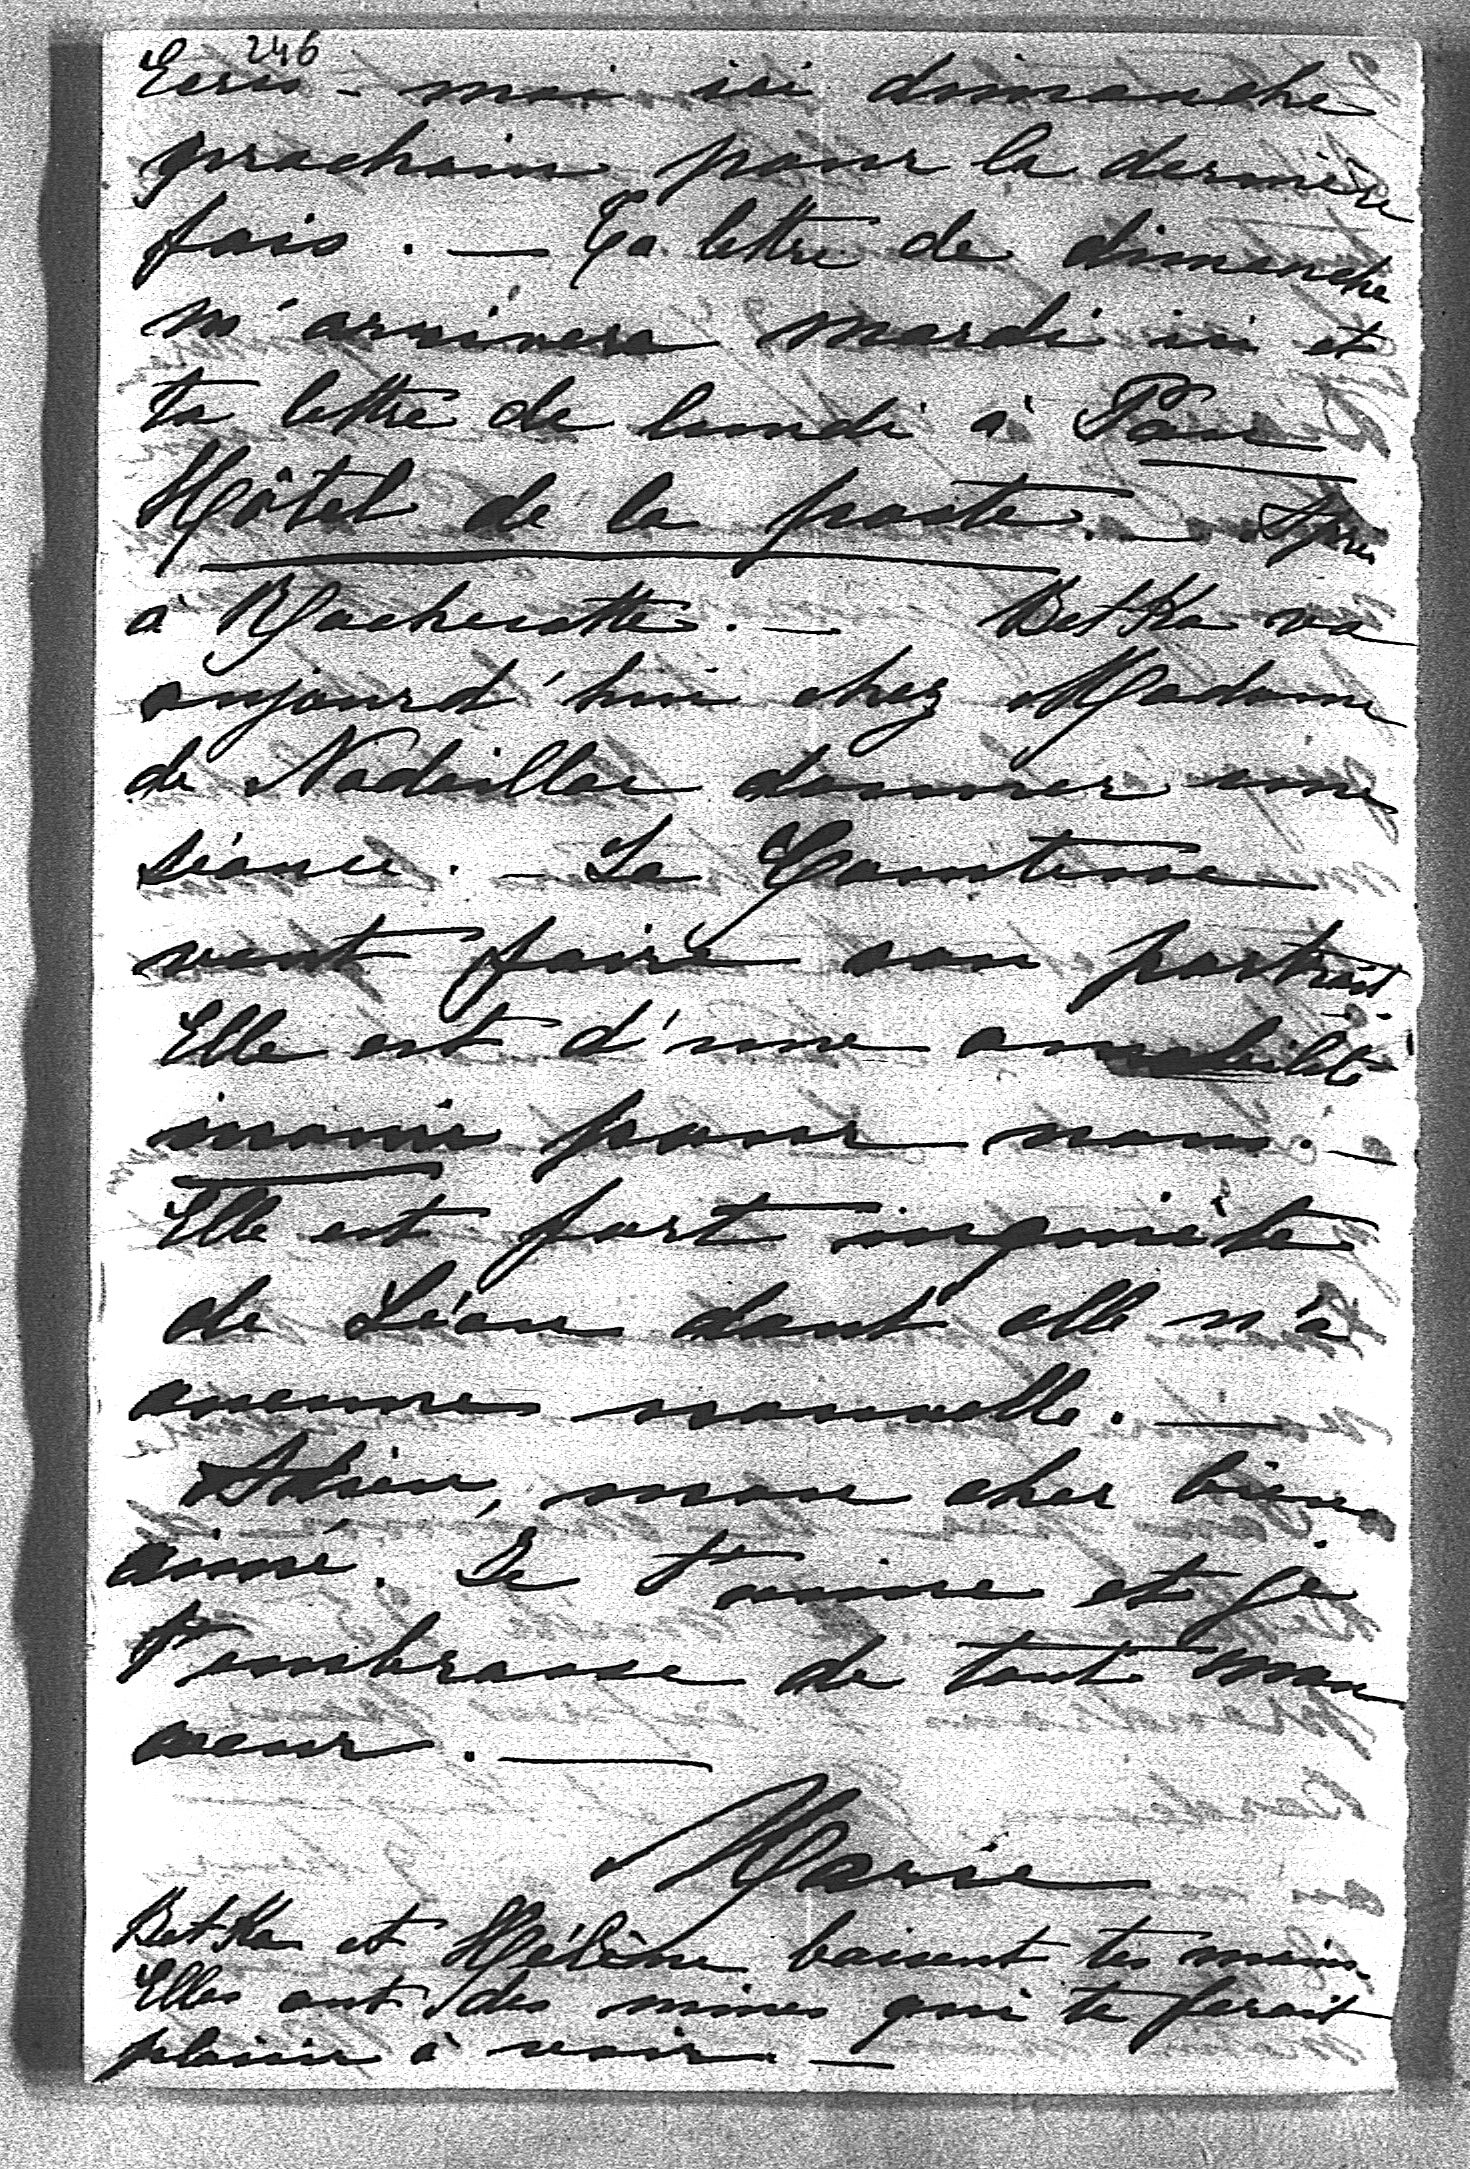 246
Ecris-moi ici dimanche
prochain pour la dernière
fois. — Ta lettre de dimanche
m'arrivera mardi ici et
ta lettre de lundi à Pau
Hôtel de la poste. — Après
à Rochecotte. — Betka va
aujourd'hui chez Madame
de Nadaillac donner une
séance. — La Comtesse
veut faire son portrait
Elle est d'une amabilité
inouie pour nous. —
Elle est fort inquiète
de Léon dont elle n'a
aucune nouvelle. —
Adieu, mon cher bien
aimé. Je t'aime et je
t'embrasse de tout mon
coeur. —
Marie
Betka et Hélène baisent tes mains.
Elles ont des mines qui te ferait
plaisir à voir. —